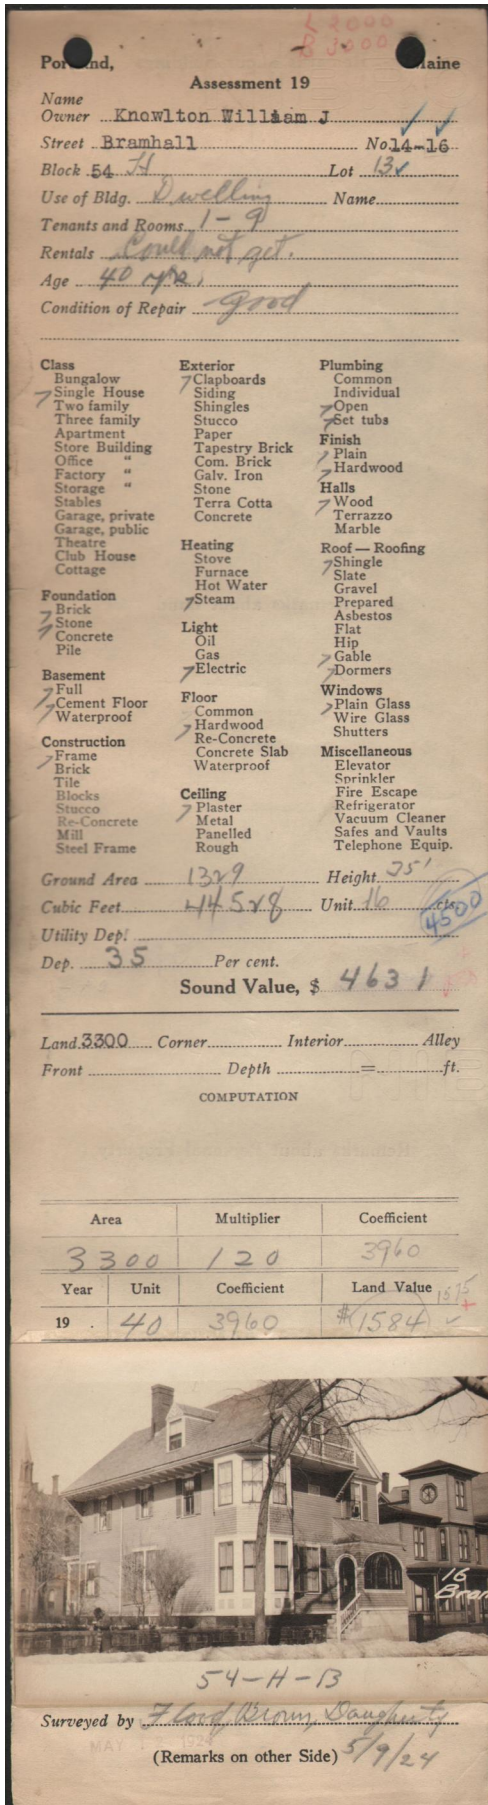 L 2000
B 3000
Portland, Maine
Assessment 19
Name
Owner Knowlton William J
Street Bramhall No. 14-16
Block 54 H Lot 13
Use of Bldg. Dwelling Name
Tenants and Rooms 1-9
Rentals Could not get.
Age 40 yrs.
Condition of Repair good
Class
Bungalow
Single House
Two family
Three family
Apartment
Store Building
Office "
Factory "
Storage "
Stables
Garage, private
Garage, public
Theatre
Club House
Cottage
Foundation
Brick
Stone
Concrete
Pile
Basement
Full
Cement Floor
Waterproof
Construction
Frame
Brick
Tile
Blocks
Stucco
Re-Concrete
Mill
Steel Frame
Exterior
Clapboards
Siding
Shingles
Stucco
Paper
Tapestry Brick
Com. Brick
Galv. Iron
Stone
Terra Cotta
Concrete
Heating
Stove
Furnace
Hot Water
Steam
Light
Oil
Gas
Electric
Floor
Common
Hardwood
Re-Concrete
Concrete Slab
Waterproof
Ceiling
Plaster
Metal
Panelled
Rough
Plumbing
Common
Individual
Open
Set tubs
Finish
Plain
Hardwood
Halls
Wood
Terrazzo
Marble
Roof — Roofing
Shingle
Slate
Gravel
Prepared
Asbestos
Flat
Hip
Gable
Dormers
Windows
Plain Glass
Wire Glass
Shutters
Miscellaneous
Elevator
Sprinkler
Fire Escape
Refrigerator
Vacuum Cleaner
Safes and Vaults
Telephone Equip.
Ground Area 1329 Height 35'
Cubic Feet 44528 Unit 16 cts.
4500
Utility Dep.
Dep. 35 Per cent.
Sound Value, $ 4631
Land 3300 Corner Interior Alley
Front Depth = ft.
COMPUTATION
Area Multiplier Coefficient
3300 120 3960
Year Unit Coefficient Land Value 1575
19 . 40 3960 $1584
16
Bram
54-H-13
Surveyed by Flood, Brown, Daugherty
MAY 1924
(Remarks on other Side) 5/9/24